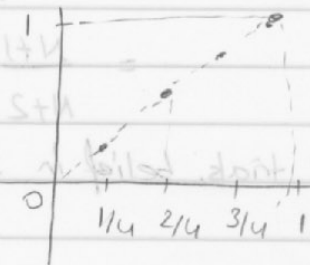 1
0
1/4 2/4 3/4 1